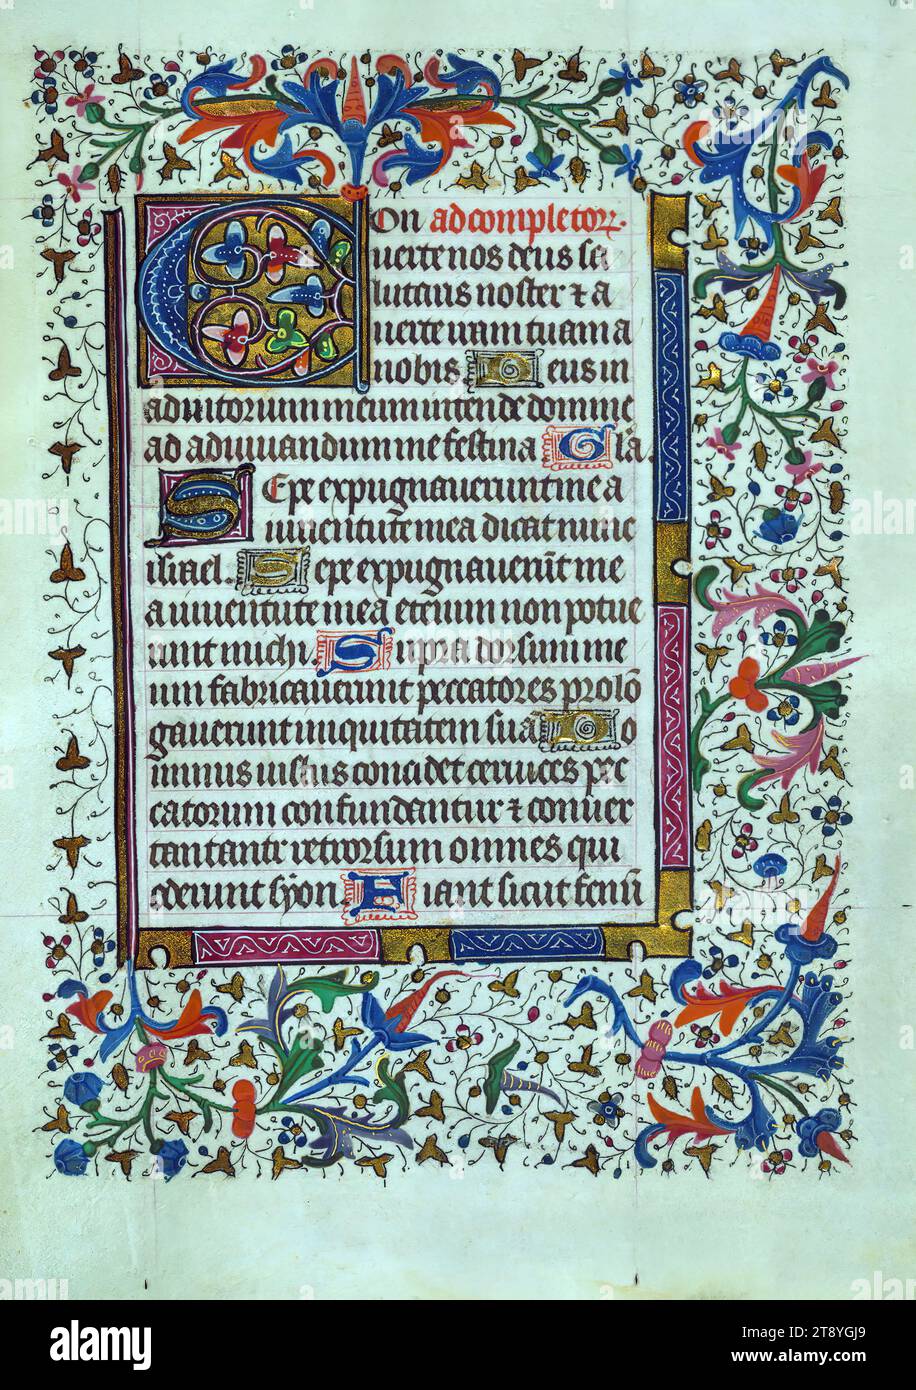 Con ad completor.
uerte nos deus sa
lutaris noster ⁊ a
uerte iram tuam a
nobis Deus in
adiutorium meum intende domine
ad adiuuandum me festina Gla.
Sepe expugnauerunt me a
iuuentute mea dicat nunc
israel. Sepe expugnauerūt me
a iuuentute mea etenim non potue
runt michi Supra dorsum me
um fabricauerunt peccatores prolō
gauerunt iniquitatem suā Do
minus iustus concidet ceruices pec
catorum confundantur ⁊ conuer
tantur retrorsum omnes qui
oderunt syon Fiant sicut fenū
alamy
Image ID: 2T8YGJ9
www.alamy.com